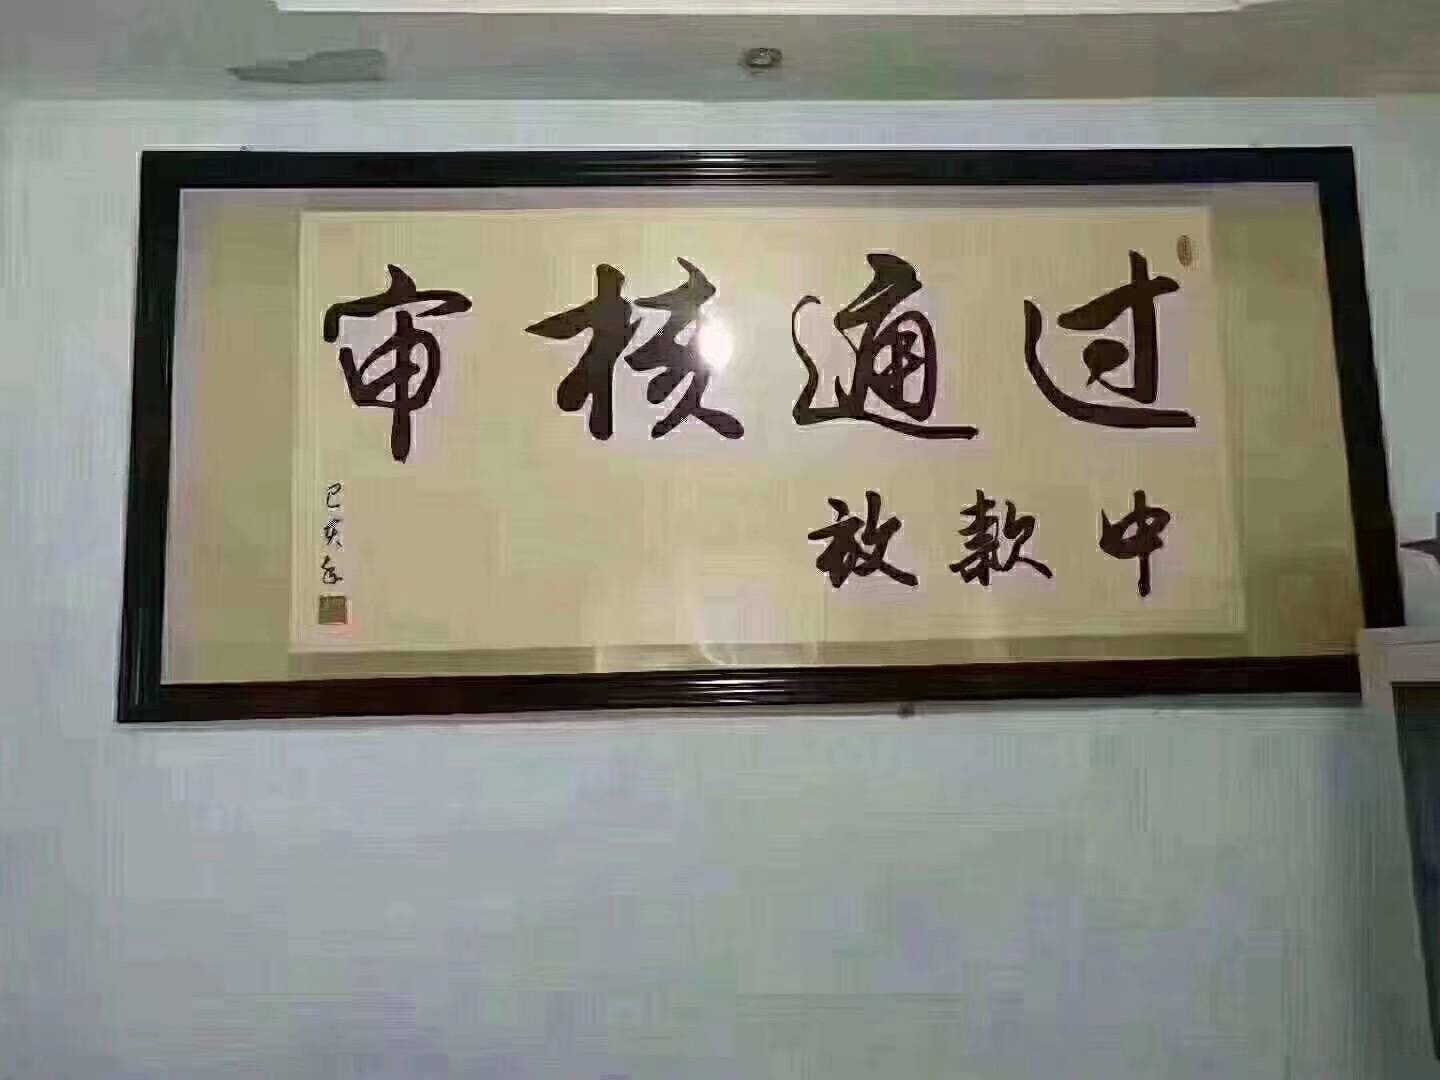 审核通过
放款中
己亥年